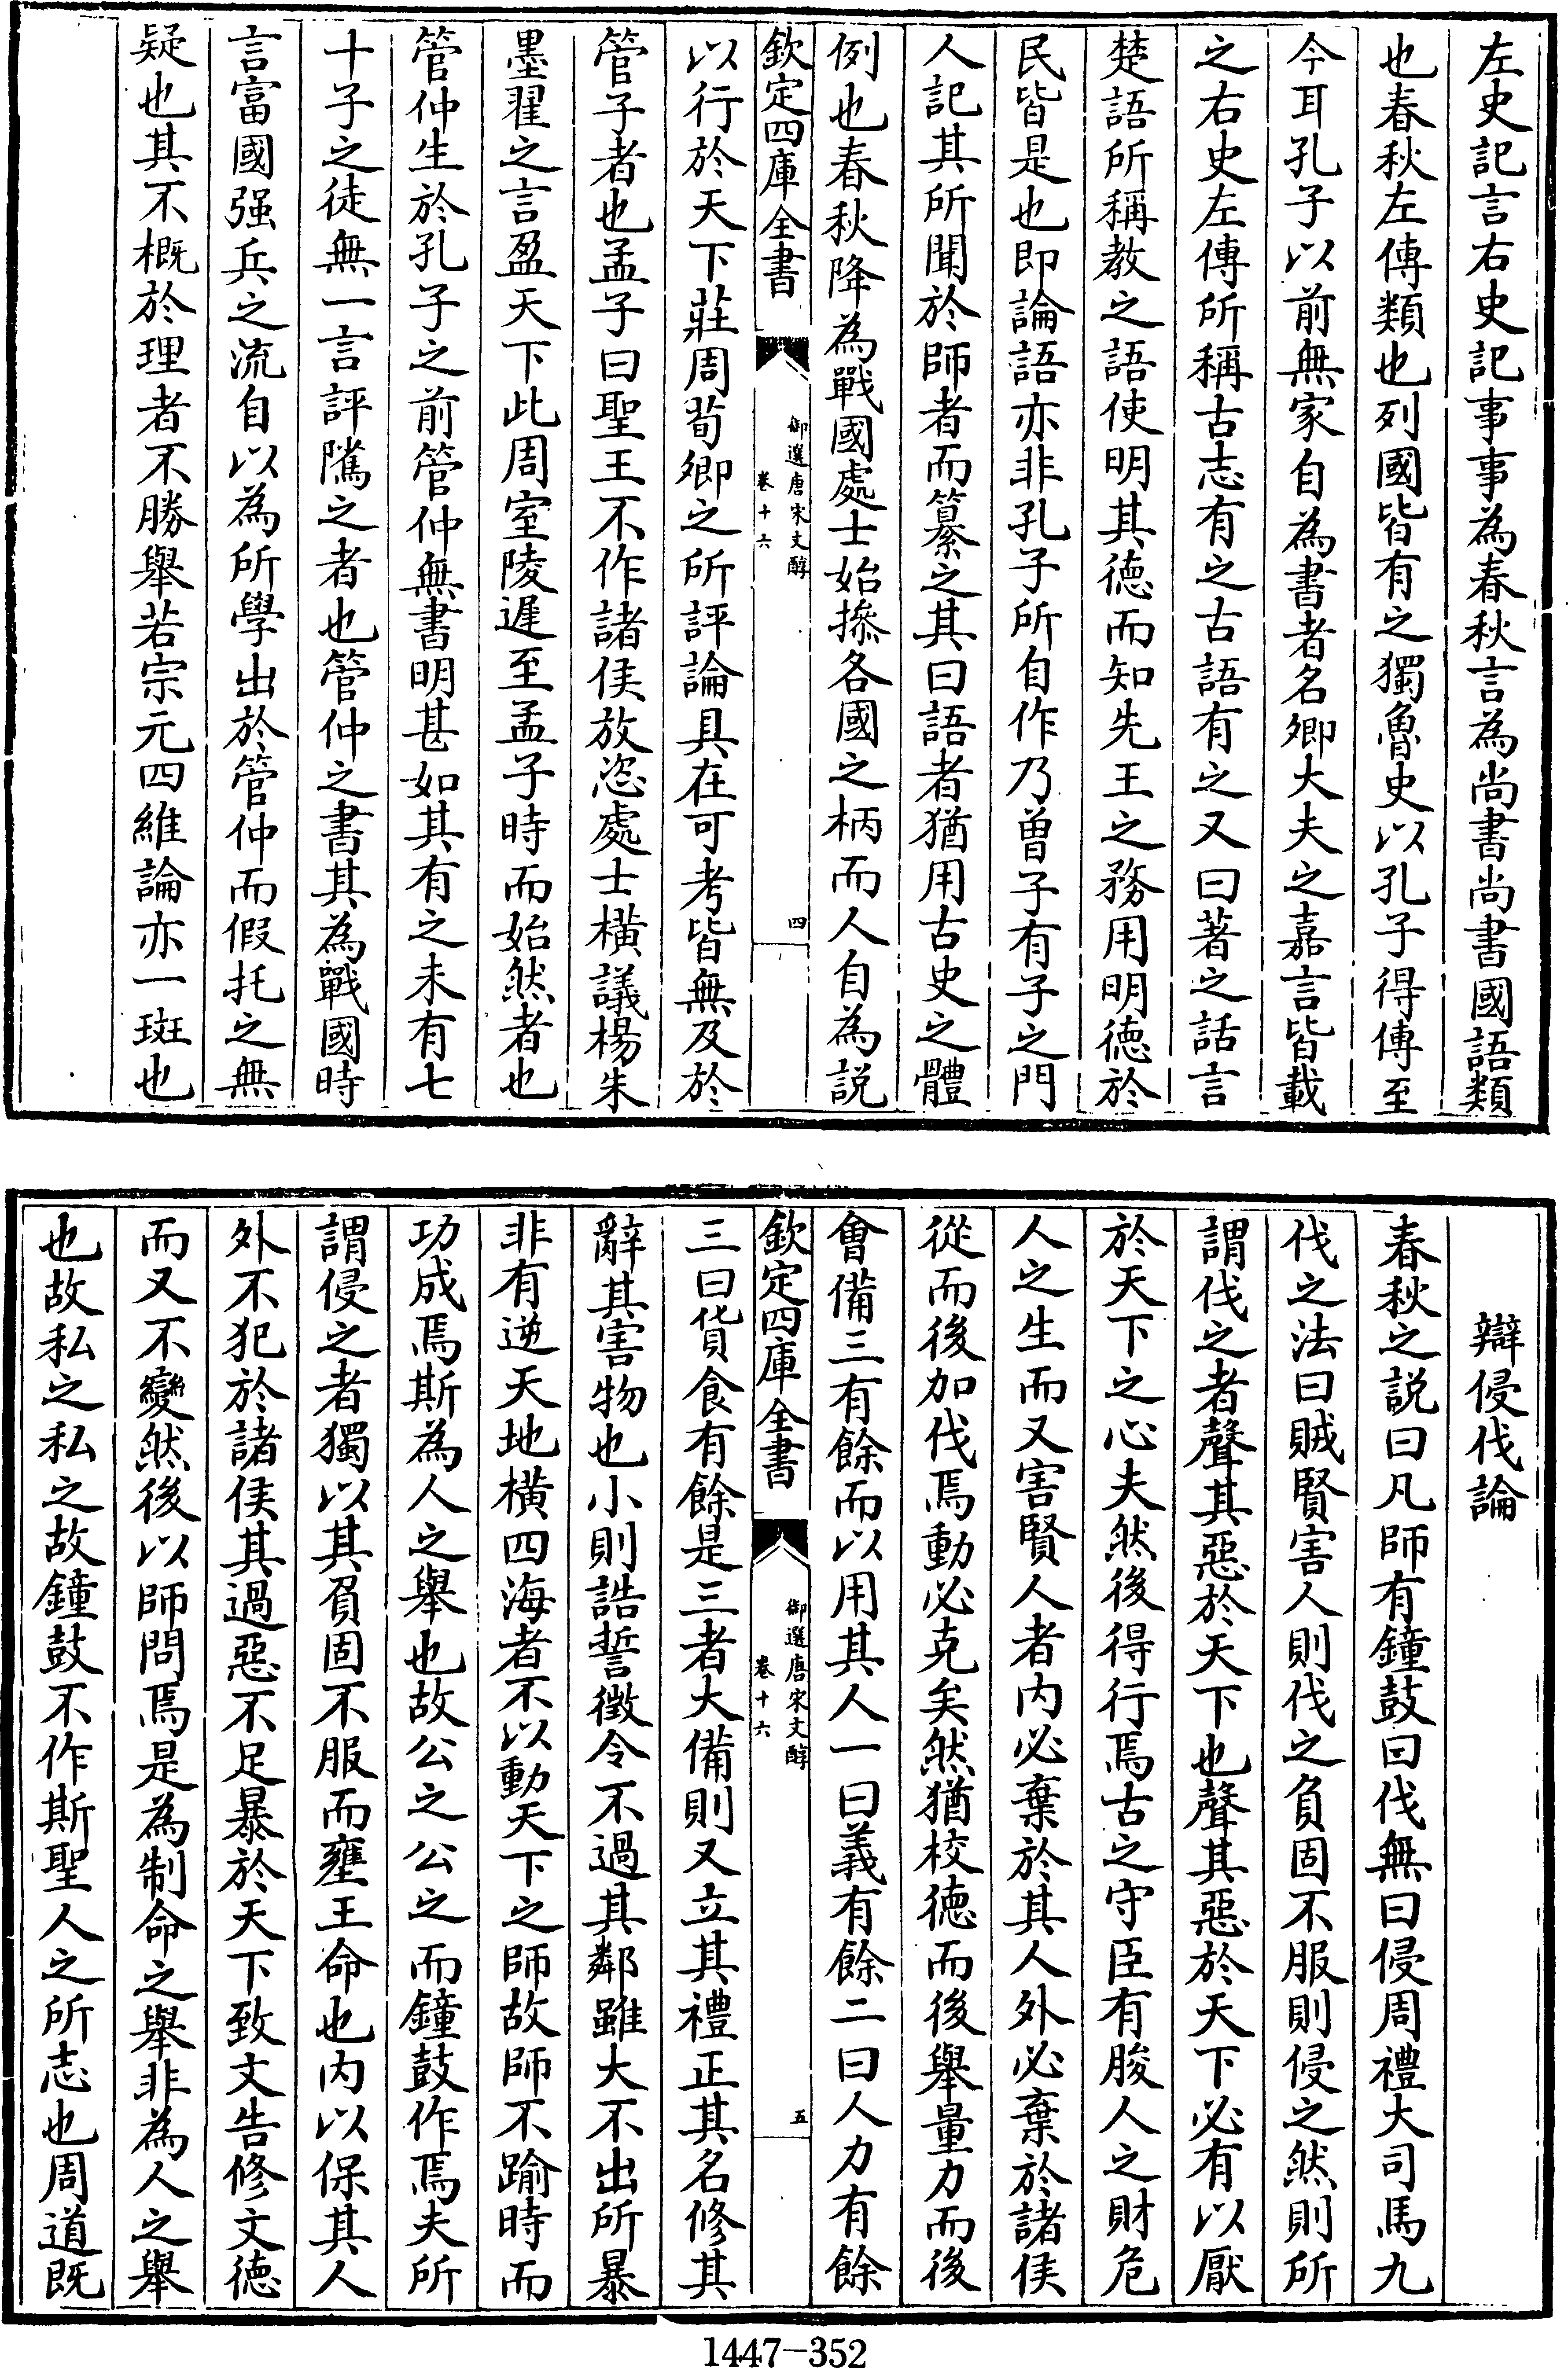 左史記言右史記事事為春秋言為尚書尚書國語類
也春秋左傳類也列國皆有之獨魯史以孔子得傳至
今耳孔子以前無家自為書者名卿大夫之嘉言皆載
之右史左傳所稱古志有之古語有之又曰著之話言
楚語所稱教之語使明其德而知先王之務用明德於
民皆是也即論語亦非孔子所自作乃曾子有子之門
人記其所聞於師者而纂之其曰語者猶用古史之體
例也春秋降為戰國處士始操各國之柄而人自為説
欽定四庫全書
御選唐宋文醇
卷十六
四
以行於天下莊周荀卿之所評論具在可考皆無及於
管子者也孟子曰聖王不作諸侯放恣處士橫議楊朱
墨翟之言盈天下此周室陵遲至孟子時而始然者也
管仲生於孔子之前管仲無書明甚如其有之未有七
十子之徒無一言評隲之者也管仲之書其為戰國時
言富國强兵之流自以為所學出於管仲而假托之無
疑也其不概於理者不勝舉若宗元四維論亦一斑也
辯侵伐論
春秋之説曰凡師有鐘鼓曰伐無曰侵周禮大司馬九
伐之法曰賊賢害人則伐之負固不服則侵之然則所
謂伐之者聲其惡於天下也聲其惡於天下必有以厭
於天下之心夫然後得行焉古之守臣有朘人之財危
人之生而又害賢人者内必棄於其人外必棄於諸侯
從而後加伐焉動必克矣然猶校德而後舉量力而後
會備三有餘而以用其人一曰義有餘二曰人力有餘
欽定四庫全書
御選唐宋文醇
卷十六
五
三曰貨食有餘是三者大備則又立其禮正其名修其
辭其害物也小則誥誓徵令不過其鄰雖大不出所暴
非有逆天地橫四海者不以動天下之師故師不踰時而
功成焉斯為人之舉也故公之公之而鐘鼓作焉夫所
謂侵之者獨以其負固不服而壅王命也内以保其人
外不犯於諸侯其過惡不足暴於天下致文告修文德
而又不變然後以師問焉是為制命之舉非為人之舉
也故私之私之故鐘鼓不作斯聖人之所志也周道既
1447-352